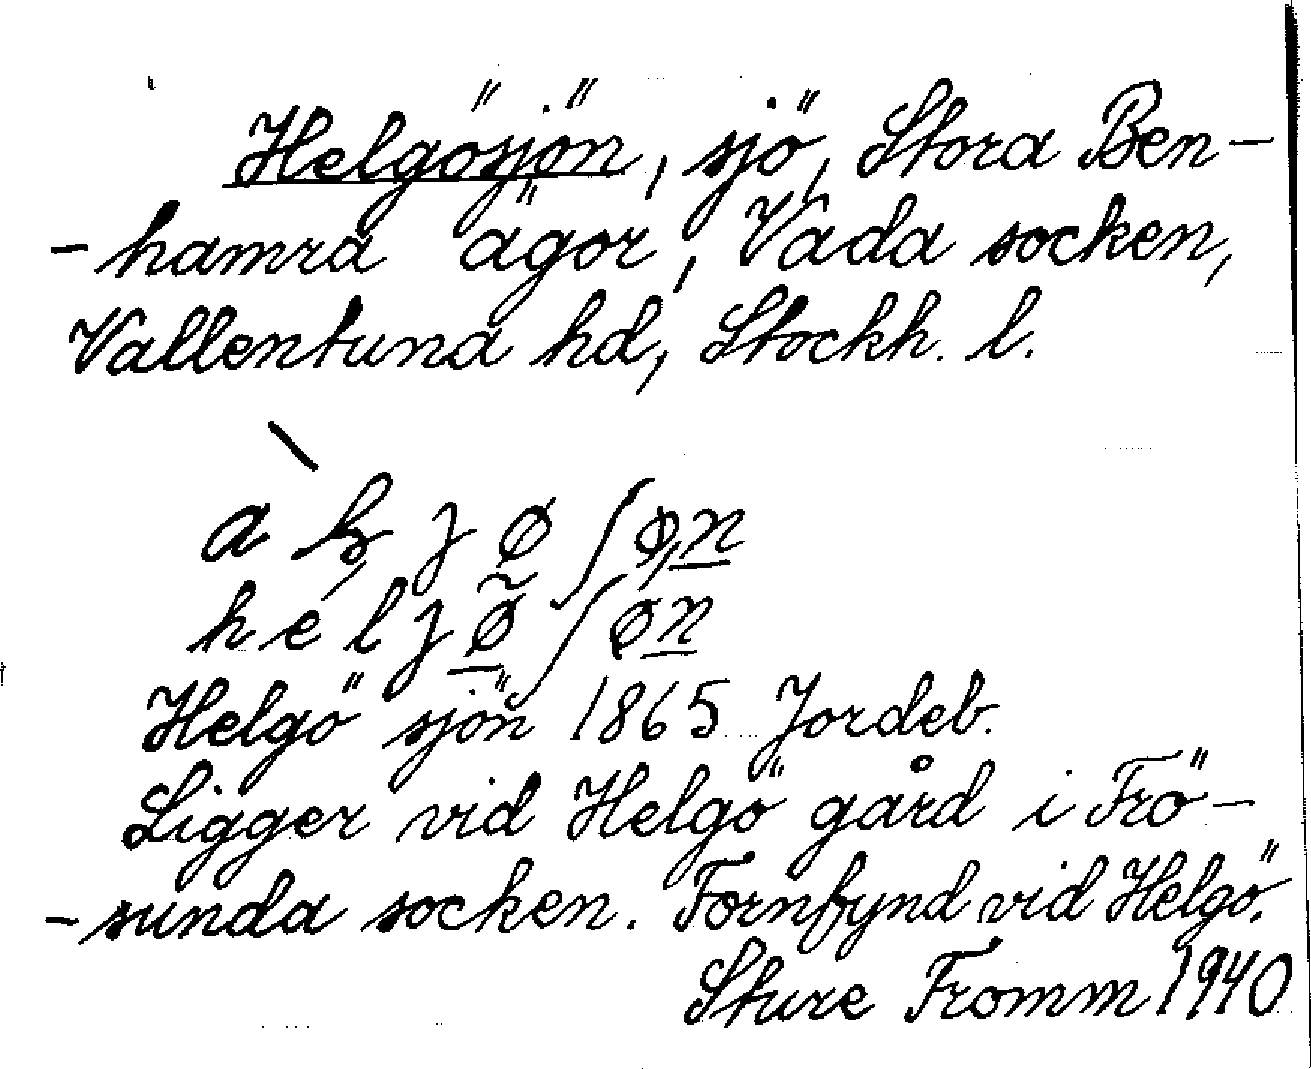 Helgösjön, sjö, Stora Ben-
-hamra ägor, Vada socken,
Vallentuna hd, Stockh. l.
helȷø̃ ʃøn
Helgö sjön 1865 Jordeb.
Ligger vid Helgö gård i Frö-
-sunda socken. Fornfynd vid Helgö.
Sture Fromm 1940